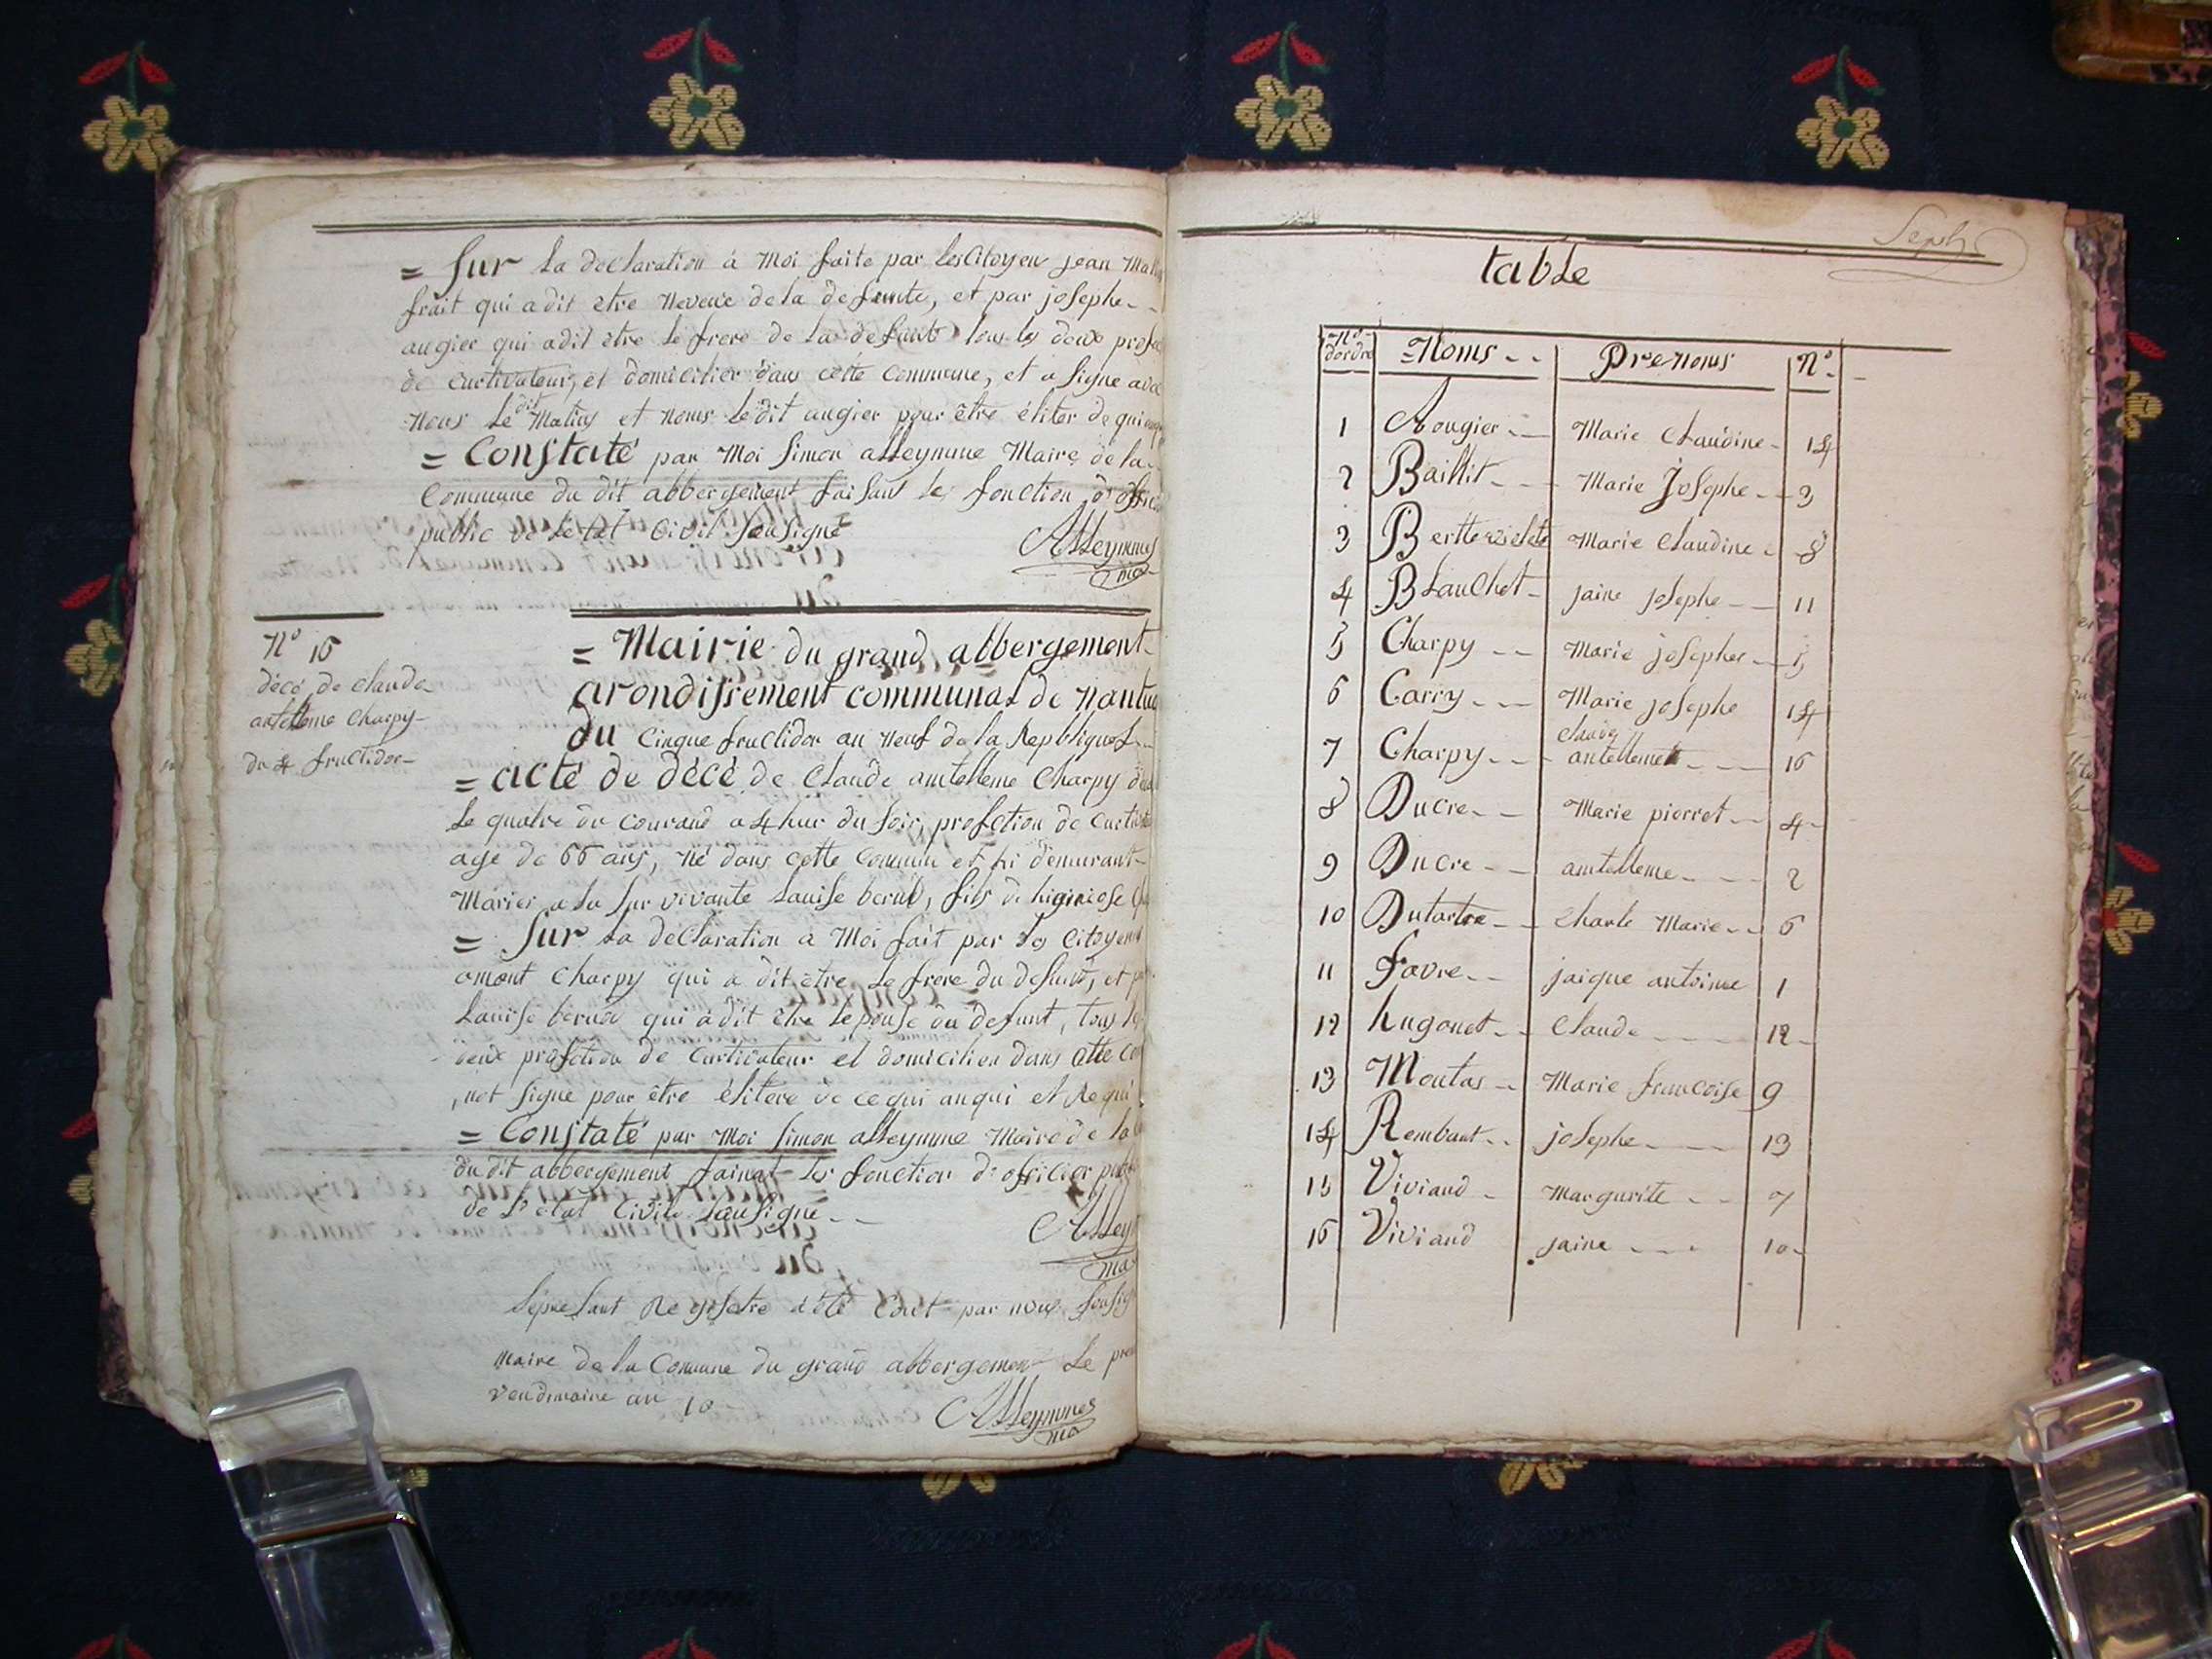 = Sur la declaration à Moi faite par les Citoyen jean
frait qui a dit etre Neveue de la defunte, et par josephe
augier qui a dit être le frere de la defunte tous les deux
de Curtivateur, et domicilier dans cette Commune, et a signe avec
nous le dit Matius et nonus ledit augier pour être éliter de qui
= Constaté par Moi Simon alleymme Maire de la
Commune du dit abbergement faisans les fonction d'offici
public de letat Civil sousigné
Alleymmes
ma
N° 16
décé de claude
antelleme Charpy
du 4 fructidor
= Mairie du grand abbergement
arondissement communal de nantua
du Cinque fructidor an neuf de la Republique
= acte de décé de Claude amtelleme Charpy
le quatre du courand a 4 hur du soir, profction de
age de 66 ans, né dans cette commun et hi demurant
Marier a la sur vivante Lauise bernd, fils de
= Sur la declaration à Moi fait par les Citoyens
amont Charpy qui a dit etre le frere du defund, et
Lauise bernd qui a dit etre lepouse du defunt, tous
deux profction de Curtivateur et domicilier dans Cette
not signe pour être élitere de ce qui anqui et Requi
= Constaté par Moi Simon alleymme Maire de la
du dit abbergement fainat les fonction d'officier
de L'etat Civile sousigne
Alley
ma
Lepresant Regisetre a été par nous
Maire de la Commune du grand abbergement Le
vendimaire an 10
Alleymmes
ma
Septz
table
N° dordre Noms Prenoms N°
1 Aougier Marie Claudine 14
2 Baillit Marie Josephe 3
3 Marie Claudine 8
4 Blauchet jaine josephe 11
5 Charpy Marie josephes 5
6 Carry Marie josephe 14
7 Charpy claude antelleme 16
8 Ducre Marie pierret 4
9 Ducre amtelleme 2
10 Dutartre Charle Marie 6
11 favre jaique antoinne 1
12 hugonet Claude 12
13 Moutas Marie francoise 9
14 Rembaut josephe 13
15 Viviand Margurite 7
16 Viviand jaine 10